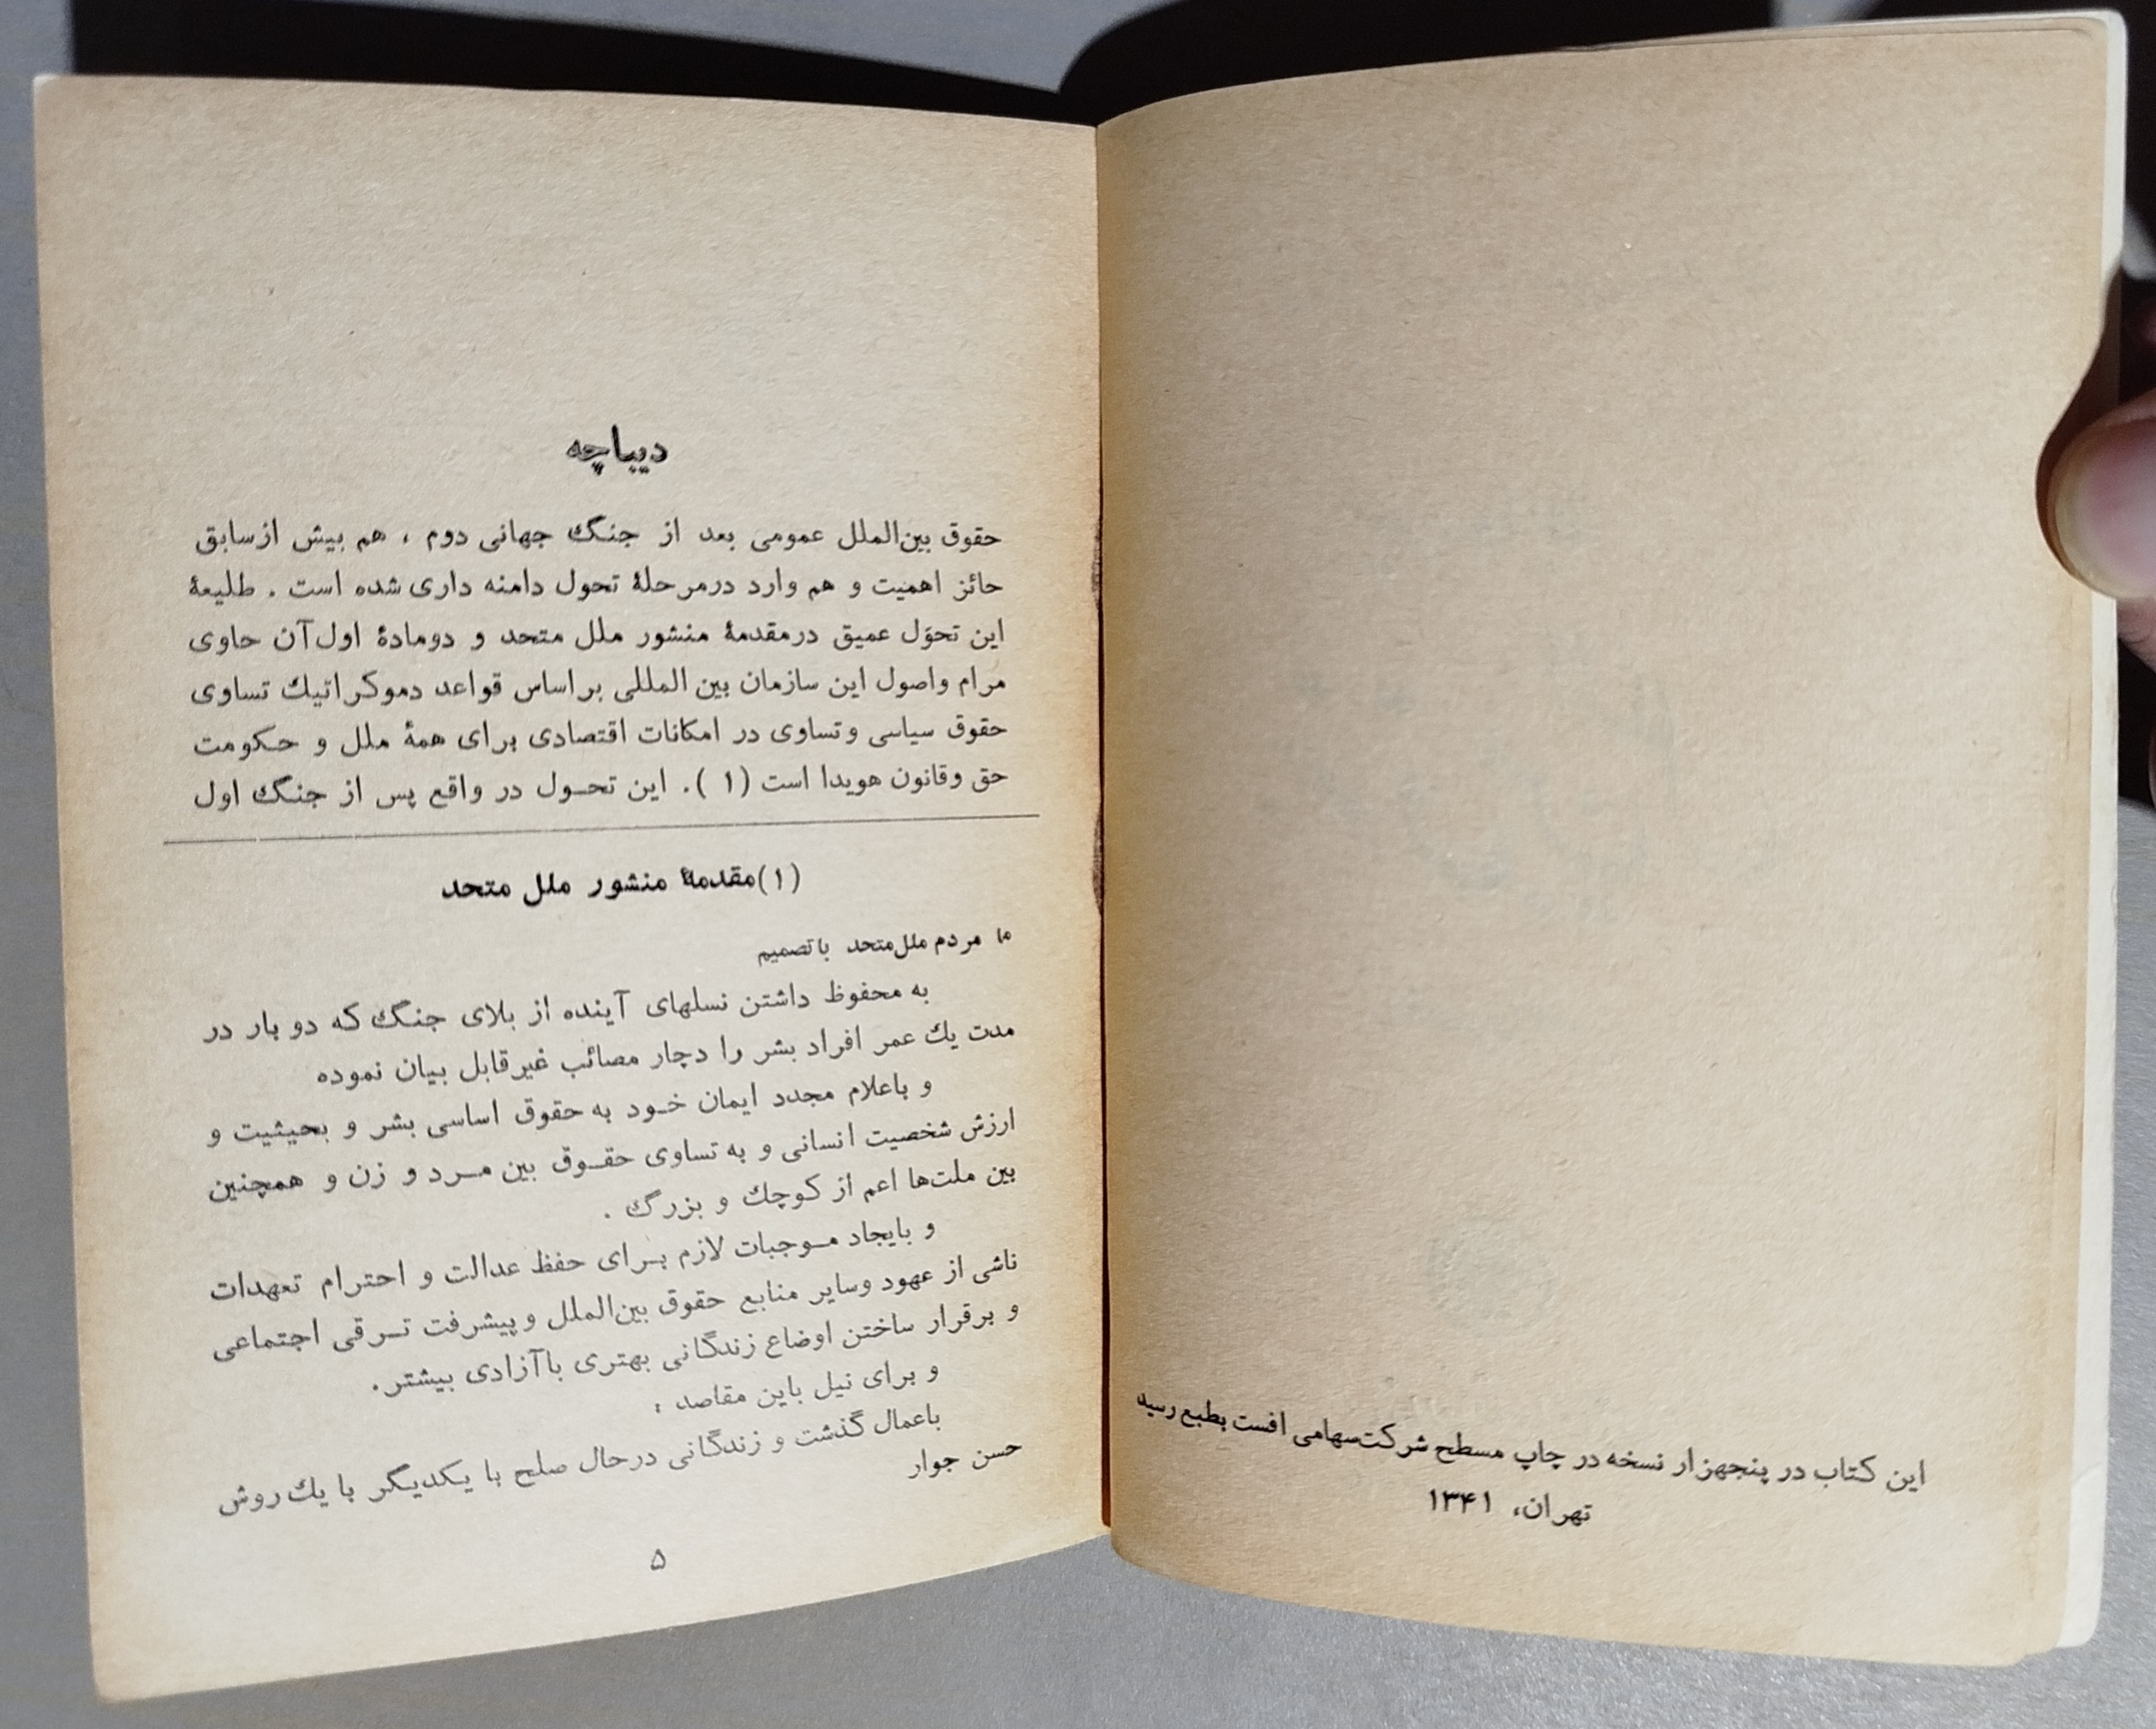 این کتاب در پنجهزار نسخه در چاپ مسطح شرکت‌سهامی افست بطبع رسید
تهران، ۱۳۴۱
دیباچه
حقوق بین‌الملل عمومی بعد از جنگ جهانی دوم ، هم بیش ازسابق
حائز اهمیت و هم وارد درمرحلهٔ تحول دامنه داری شده است . طلیعهٔ
این تحوّل عمیق درمقدمهٔ منشور ملل متحد و دومادهٔ اول‌آن حاوی
مرام واصول این سازمان بین المللی براساس قواعد دموکراتیك تساوی
حقوق سیاسی وتساوی در امکانات اقتصادی برای همهٔ ملل و حکومت
حق وقانون هویدا است (۱). این تحـول در واقع پس از جنگ اول
(۱)مقدمهٔ منشور ملل متحد
ما مردم ملل‌متحد باتصمیم
به محفوظ داشتن نسلهای آینده از بلای جنگ که دو بار در
مدت یك عمر افراد بشر را دچار مصائب غیرقابل بیان نموده
و باعلام مجدد ایمان خـود به حقوق اساسی بشر و بحیثیت و
ارزش شخصیت انسانی و به تساوی حقـوق بین مـرد و زن و همچنین
بین ملت‌ها اعم از کوچك و بزرگ .
و بایجاد مـوجبات لازم بـرای حفظ عدالت و احترام تعهدات
ناشی از عهود وسایر منابع حقوق بین‌الملل و پیشرفت تـرقی اجتماعی
و برقرار ساختن اوضاع زندگانی بهتری باآزادی بیشتر.
و برای نیل باین مقاصد :
باعمال گذشت و زندگانی درحال صلح با یکدیگر با یك روش
حسن جوار
۵